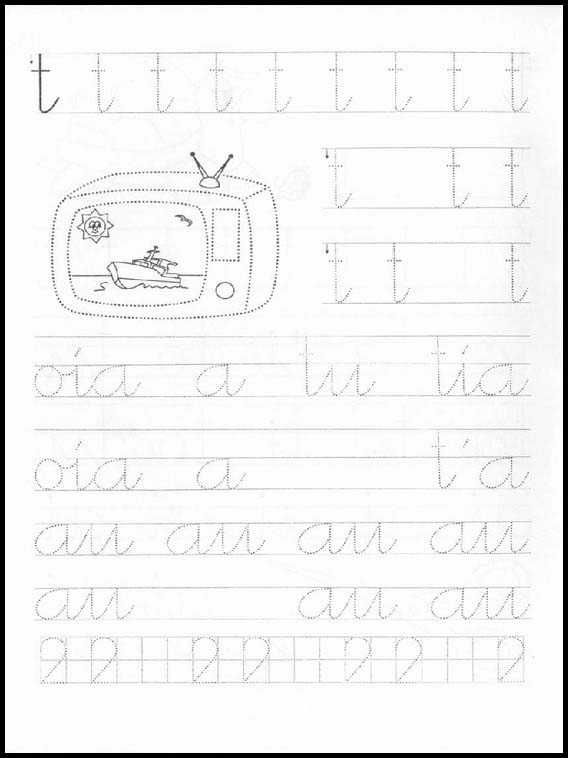 t t t t t t t t t
t t t
t t t
oía a tu tía
oía a t´a
au au au au
au au au
2 2 2 2 2 2 2